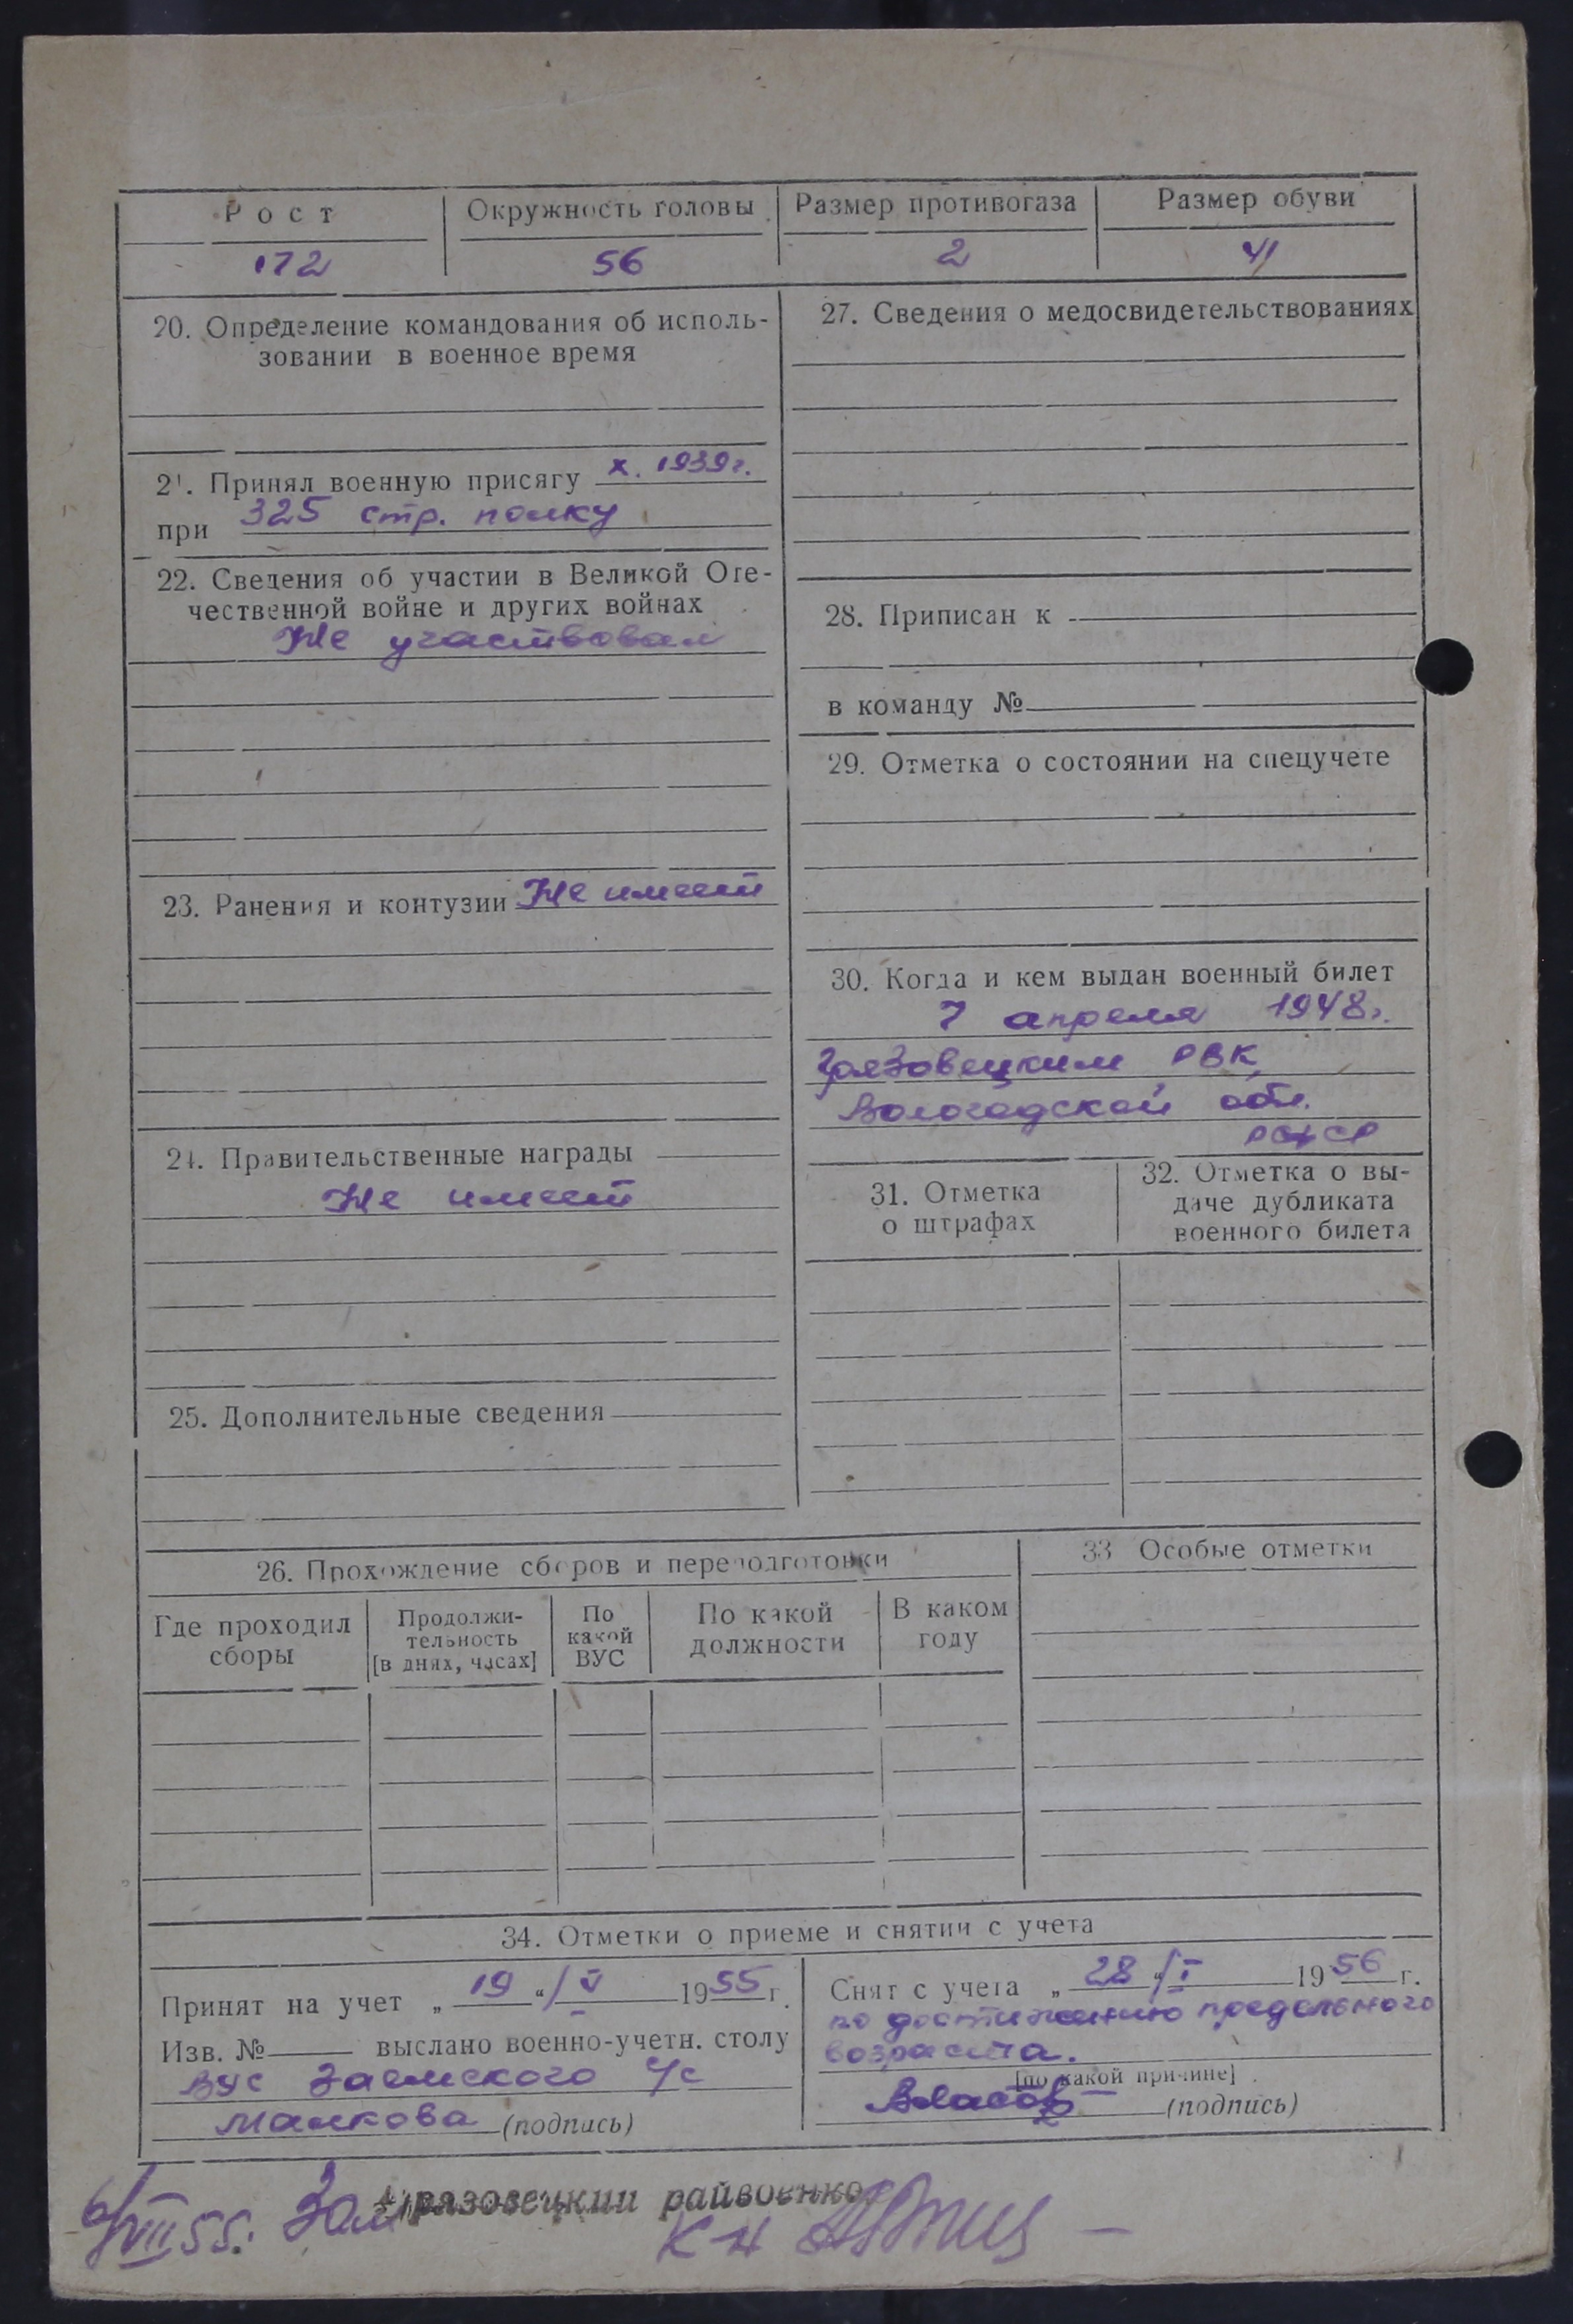 Рост Окружность головы Размер противогаза Размер обуви
172 56 2 41
20. Определение командования об исполь-
зовании в военное время
21. Принял военную присягу X. 1939г.
при 325 стр. полку
22. Сведения об участии в Великой Оте-
чественной войне и других войнах
Не участвовал
23. Ранения и контузии Не имеет
24. Правительственные награды
Не имеет
25. Дополнительные сведения
27. Сведения о медосвидетельствованиях
28. Приписан к
в команду №
29. Отметка о состоянии на спецучете
30. Когда и кем выдан военный билет
7 апреля 1948г.
Грязовецким РВК,
Вологодской обл.
РСФСР
31. Отметка
о штрафах
32. Отметка о вы-
даче дубликата
военного билета
26. Прохождение сборов и переподготовки
Где проходил
сборы
Продолжи-
тельность
[в днях, часах]
По
какой
ВУС
По какой
должности
В каком
году
33 Особые отметки
34. Отметки о приеме и снятии с учета
Принят на учет „ 19 “/ V 1955 г.
Изв. № выслано военно-учетн. столу
ВУС Заемского с/с
Малкова (подпись)
Снят с учета „ 28 “/ I 1956 г.
по достижению предельного
возраста.
[по какой причине]
Власов (подпись)
6/VIII 55. Зам Грязовецкий райвоенко
К-н